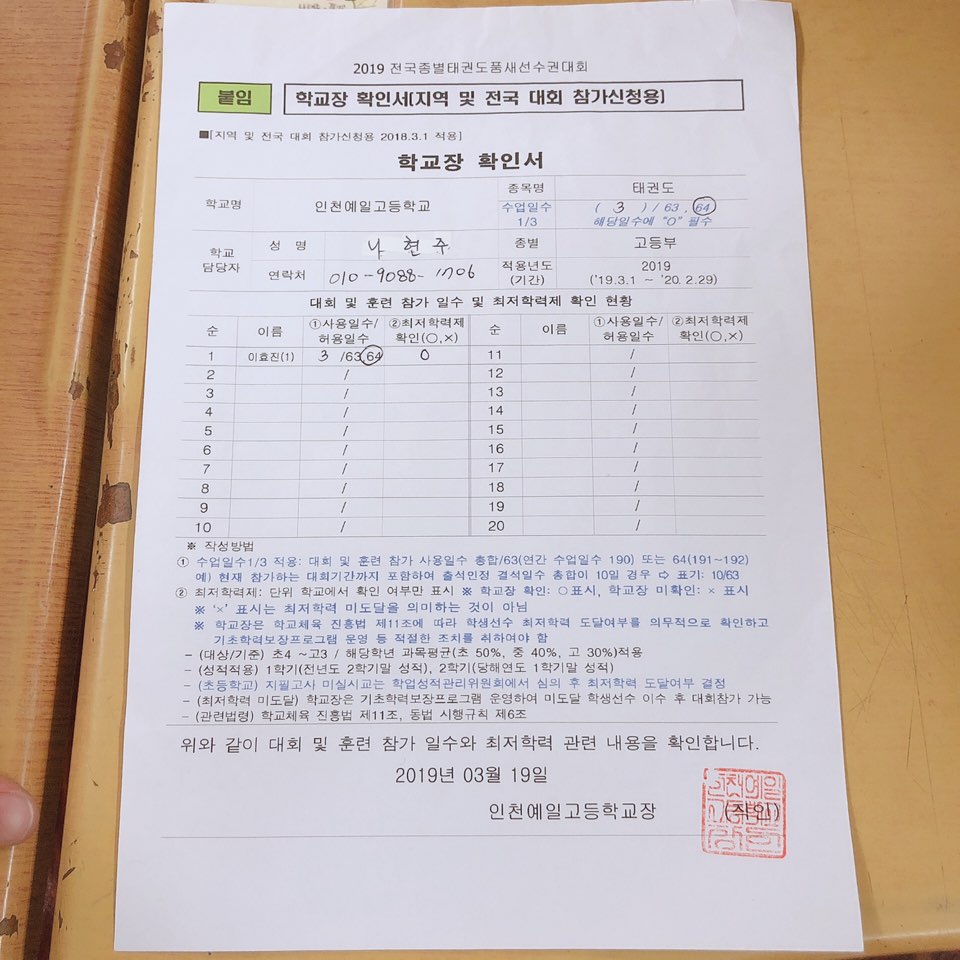 2019 전국종별태권도품새선수권대회
붙임 학교장 확인서(지역 및 전국 대회 참가신청용)
■[지역 및 전국 대회 참가신청용 2018.3.1 적용]
학교장 확인서
학교명 인천예일고등학교 종목명 태권도
수업일수 1/3 ( 3 ) / 63 . 64
해당일수에 "O" 필수
학교 담당자 성 명 나 현 주 종별 고등부
연락처 010-9088-1706 적용년도 (기간) 2019 ('19.3.1 ~ '20.2.29)
대회 및 훈련 참가 일수 및 최저학력제 확인 현황
순 이름 ①사용일수/허용일수 ②최저학력제 확인(○,×) 순 이름 ①사용일수/허용일수 ②최저학력제 확인(○,×)
1 이효진(1) 3 /63,64 0 11 /
2 / 12 /
3 / 13 /
4 / 14 /
5 / 15 /
6 / 16 /
7 / 17 /
8 / 18 /
9 / 19 /
10 / 20 /
※ 작성방법
① 수업일수1/3 적용: 대회 및 훈련 참가 사용일수 총합/63(연간 수업일수 190) 또는 64(191~192)
예) 현재 참가하는 대회기간까지 포함하여 출석인정 결석일수 총합이 10일 경우 ⇨ 표기: 10/63
② 최저학력제: 단위 학교에서 확인 여부만 표시 ※ 학교장 확인: ○표시, 학교장 미확인: × 표시
※ '×' 표시는 최저학력 미도달을 의미하는 것이 아님
※ 학교장은 학교체육 진흥법 제11조에 따라 학생선수 최저학력 도달여부를 의무적으로 확인하고
기초학력보장프로그램 운영 등 적절한 조치를 취하여야 함
- (대상/기준) 초4 ~고3 / 해당학년 과목평균(초 50%, 중 40%, 고 30%)적용
- (성적적용) 1학기(전년도 2학기말 성적), 2학기(당해연도 1학기말 성적)
- (초등학교) 지필고사 미실시교는 학업성적관리위원회에서 심의 후 최저학력 도달여부 결정
- (최저학력 미도달) 학교장은 기초학력보장프로그램 운영하여 미도달 학생선수 이수 후 대회참가 가능
- (관련법령) 학교체육 진흥법 제11조, 동법 시행규칙 제6조
위와 같이 대회 및 훈련 참가 일수와 최저학력 관련 내용을 확인합니다.
2019년 03월 19일
인천예일고등학교장 (직인)